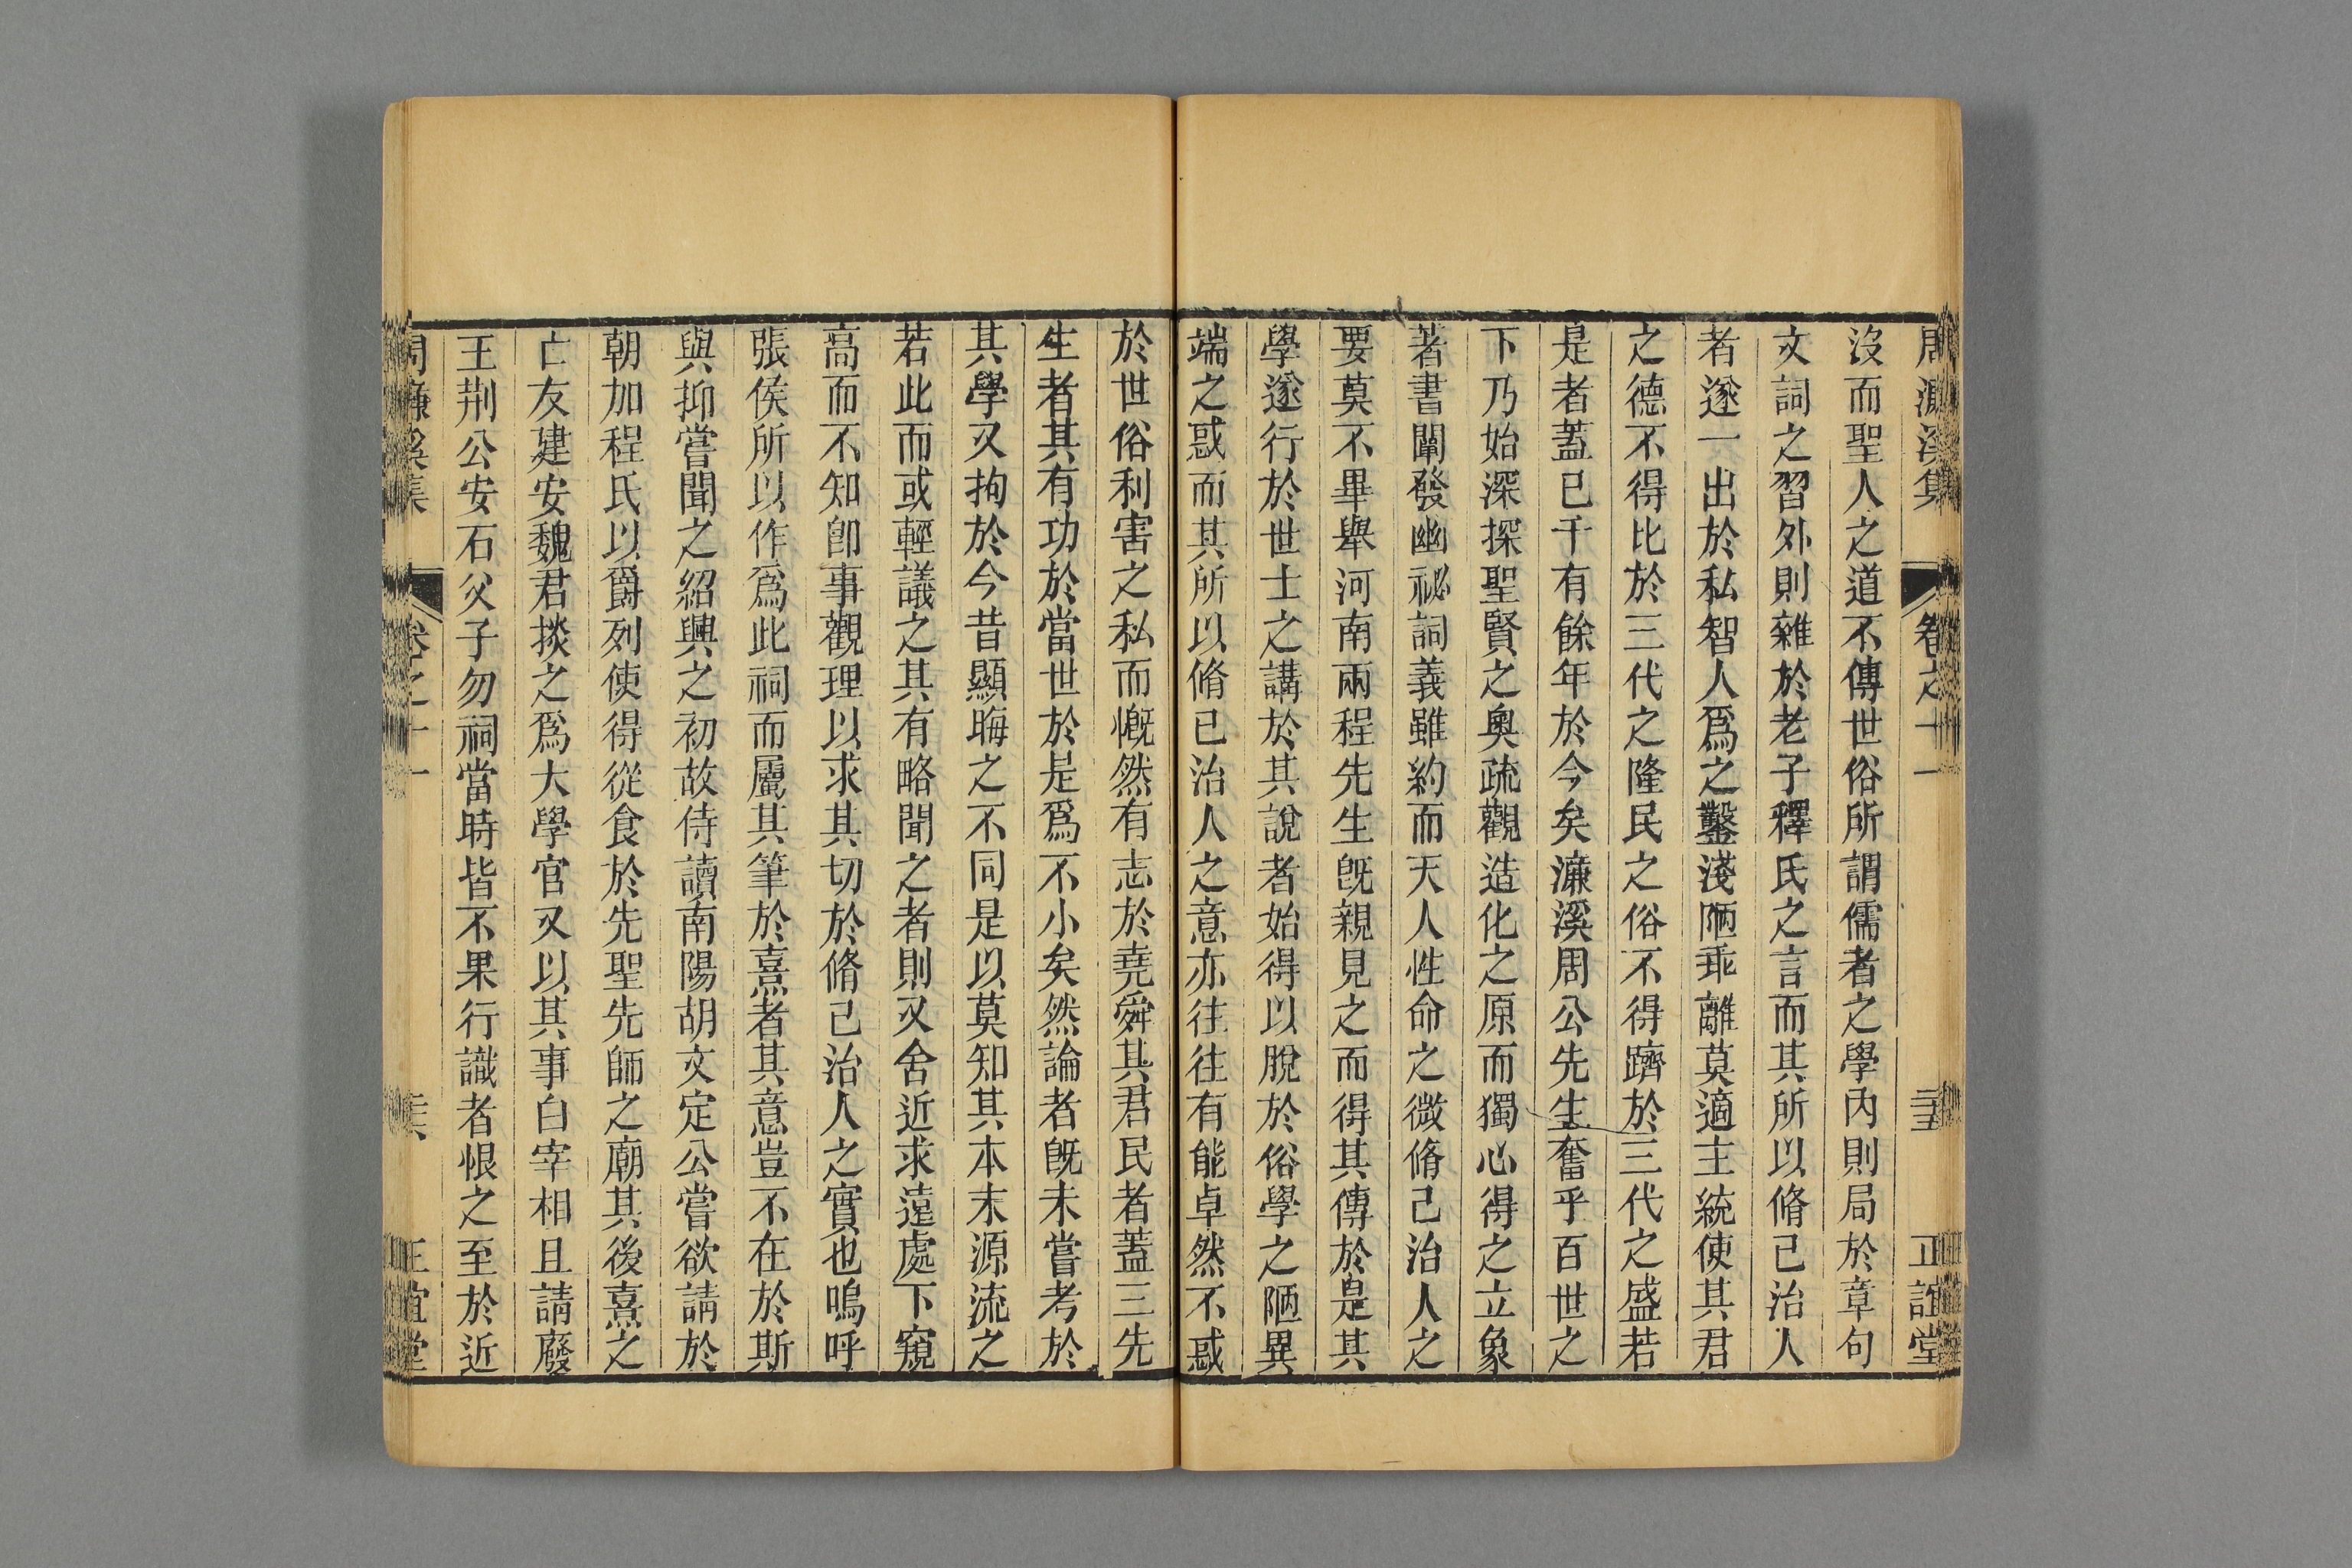 周濂溪集 卷之十一 三五 正誼堂
沒而聖人之道不傳世俗所謂儒者之學內則局於章句
文詞之習外則雜於老子釋氏之言而其所以脩己治人
者遂一出於私智人爲之鑿淺陋乖離莫適主統使其君
之德不得比於三代之隆民之俗不得躋於三代之盛若
是者蓋已千有餘年於今矣濂溪周公先生奮乎百世之
下乃始深探聖賢之奧疏觀造化之原而獨心得之立象
著書闡發幽祕詞義雖約而天人性命之微脩己治人之
要莫不畢舉河南兩程先生旣親見之而得其傳於是其
學遂行於世士之講於其說者始得以脫於俗學之陋異
端之惑而其所以脩已治人之意亦往往有能卓然不惑
於世俗利害之私而慨然有志於堯舜其君民者蓋三先
生者其有功於當世於是爲不小矣然論者旣未嘗考於
其學又拘於今昔顯晦之不同是以莫知其本末源流之
若此而或輕議之其有略聞之者則又舍近求遠處下窺
高而不知卽事觀理以求其切於脩己治人之實也嗚呼
張侯所以作爲此祠而屬其筆於熹者其意豈不在於斯
與抑嘗聞之紹興之初故侍讀南陽胡文定公嘗欲請於
朝加程氏以爵列使得從食於先聖先師之廟其後熹之
亡友建安魏君掞之爲大學官又以其事白宰相且請廢
王荆公安石父子勿祠當時皆不果行識者恨之至於近
周濂溪集 卷之十一 三六 正誼堂